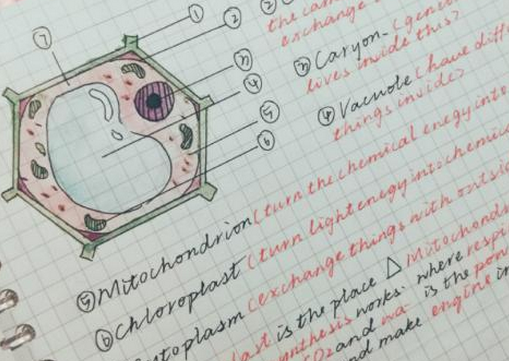 ①
②
③
④
⑤
⑥
⑦
②
the cam
exchange
③ Caryon (geni
lives inside this?
④ Vacuole (have diff
things inside?
⑤ Mitochondrion (turn the chemical enegy into
⑥ Chloroplast (turn light enegy into chemic
toplasm (exchange things with outsid
last is the place △ Mitochondr
ynthesis works. where respi
CO2 and wa is the pow
and make engine in